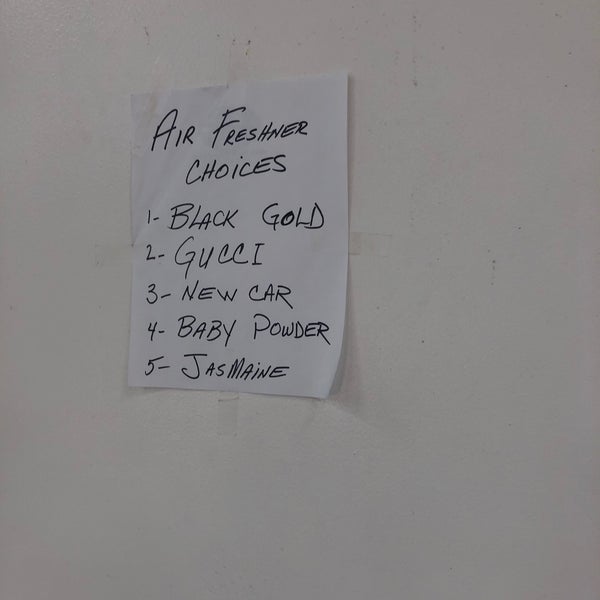 AIR FRESHNER
CHOICES
1- BLACK GOLD
2- GUCCI
3- NEW CAR
4- BABY POWDER
5- JASMAINE